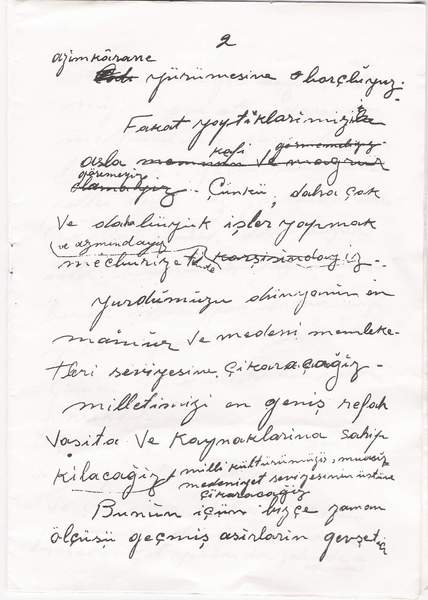 2
azimkârane
yürümesine borçluyuz.
Fakat yaptıklarımızı
asla kâfi görmemeliyiz
memnun ve mağrur
göremeyiz
olamayız. Çünkü, daha çok
ve daha büyük işler yapmak
ve azmindeyiz
mecburiyetinde karşısındayız.
Yurdumuzu dünyanın en
mâmur ve medenî memleke-
tleri seviyesine çıkaracağız.
milletimizi en geniş refah
vasıta ve kaynaklarına sahip
kılacağız millî kültürümüzü, muasır
medeniyet seviyesinin üstüne
çıkaracağız
Bunun için bizce zaman
ölçüsü geçmiş asırların gevşetici